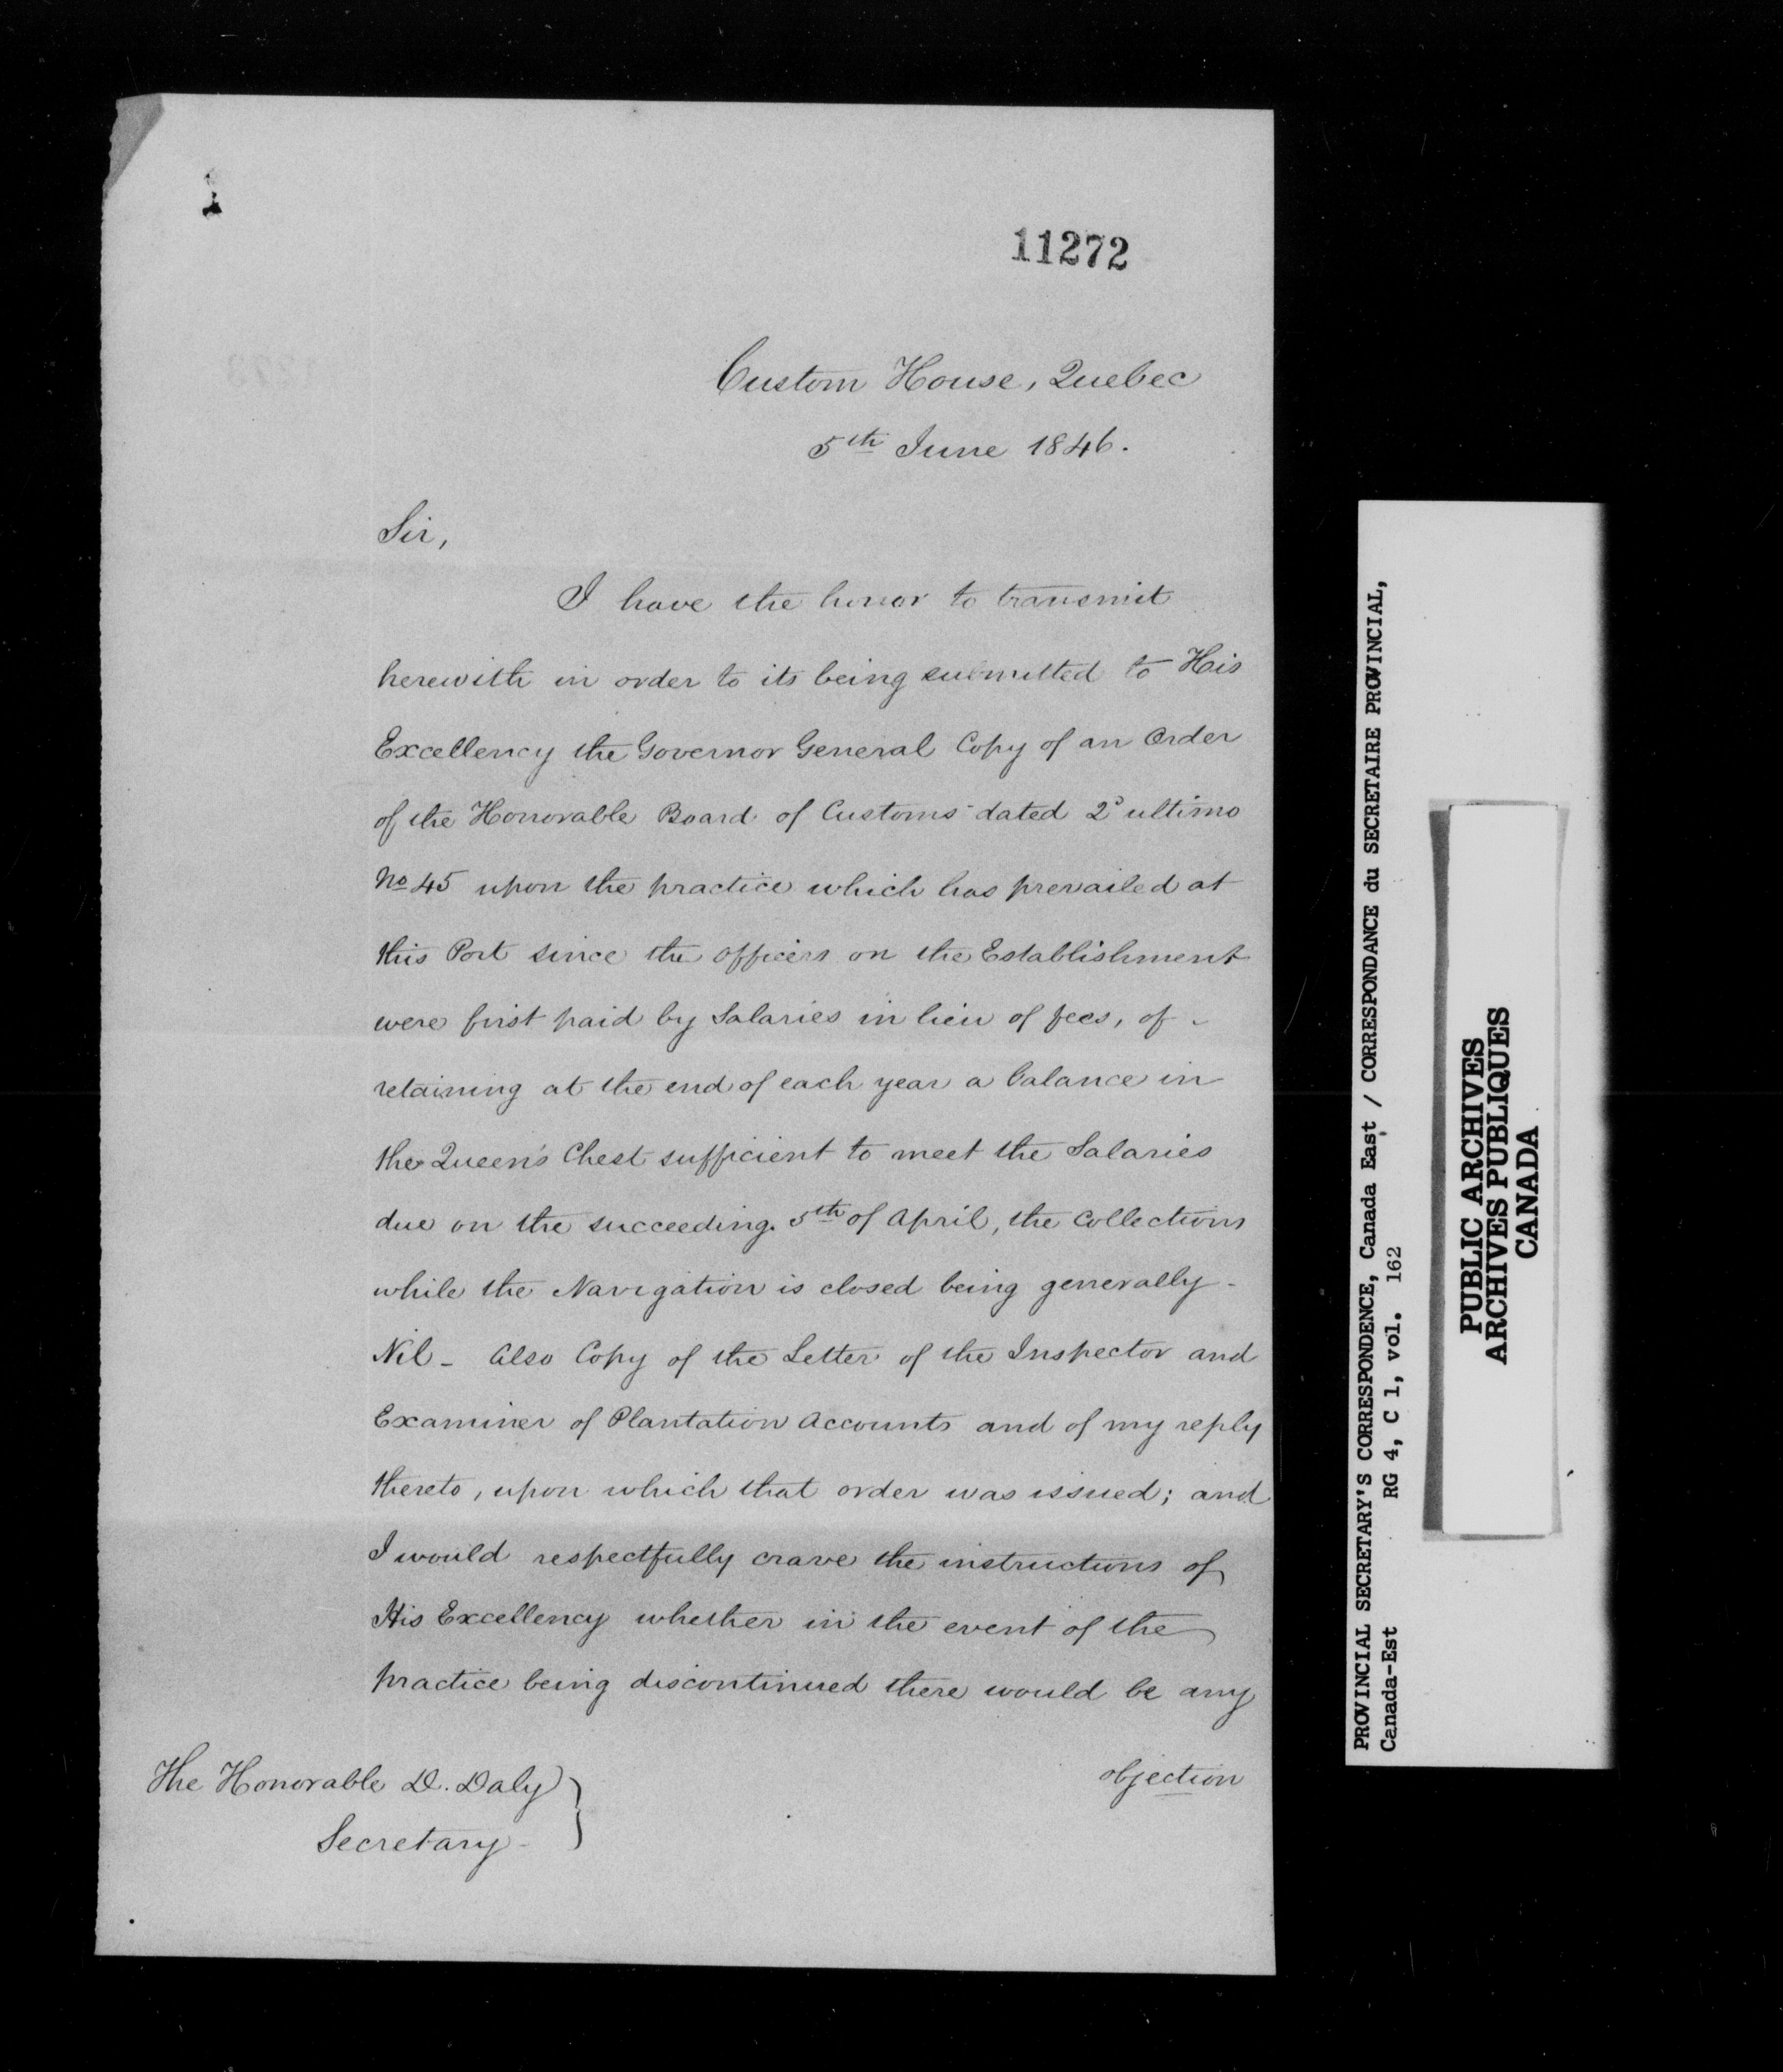 11272
Custom House, Quebec
5th June 1846.
Sir,
I have the honor to transmit
herewith in order to its being submitted to His
Excellency the Governor General Copy of an Order
of the Honorable Board of Customs dated 2d ultimo
No 45 upon the practice which has prevailed at
this Port since the officers on the Establishment
were first paid by Salaries in lieu of fees, of -
retaining at the end of each year a balance in
the Queen's Chest sufficient to meet the Salaries
due on the succeeding 5th of April, the Collections
while the Navigation is closed being generally -
Nil - Also Copy of the Letter of the Inspector and
Examiner of Plantation Accounts and of my reply
thereto, upon which that order was issued; and
I would respectfully crave the instructions of
His Excellency whether in the event of the
practice being discontinued there would be any
objection
The Honorable D. Daly
Secretary -
PROVINCIAL SECRETARY'S CORRESPONDENCE, Canada East / CORRESPONDANCE du SECRETAIRE PROVINCIAL,
Canada-Est RG 4, C 1, vol. 162
PUBLIC ARCHIVES
ARCHIVES PUBLIQUES
CANADA